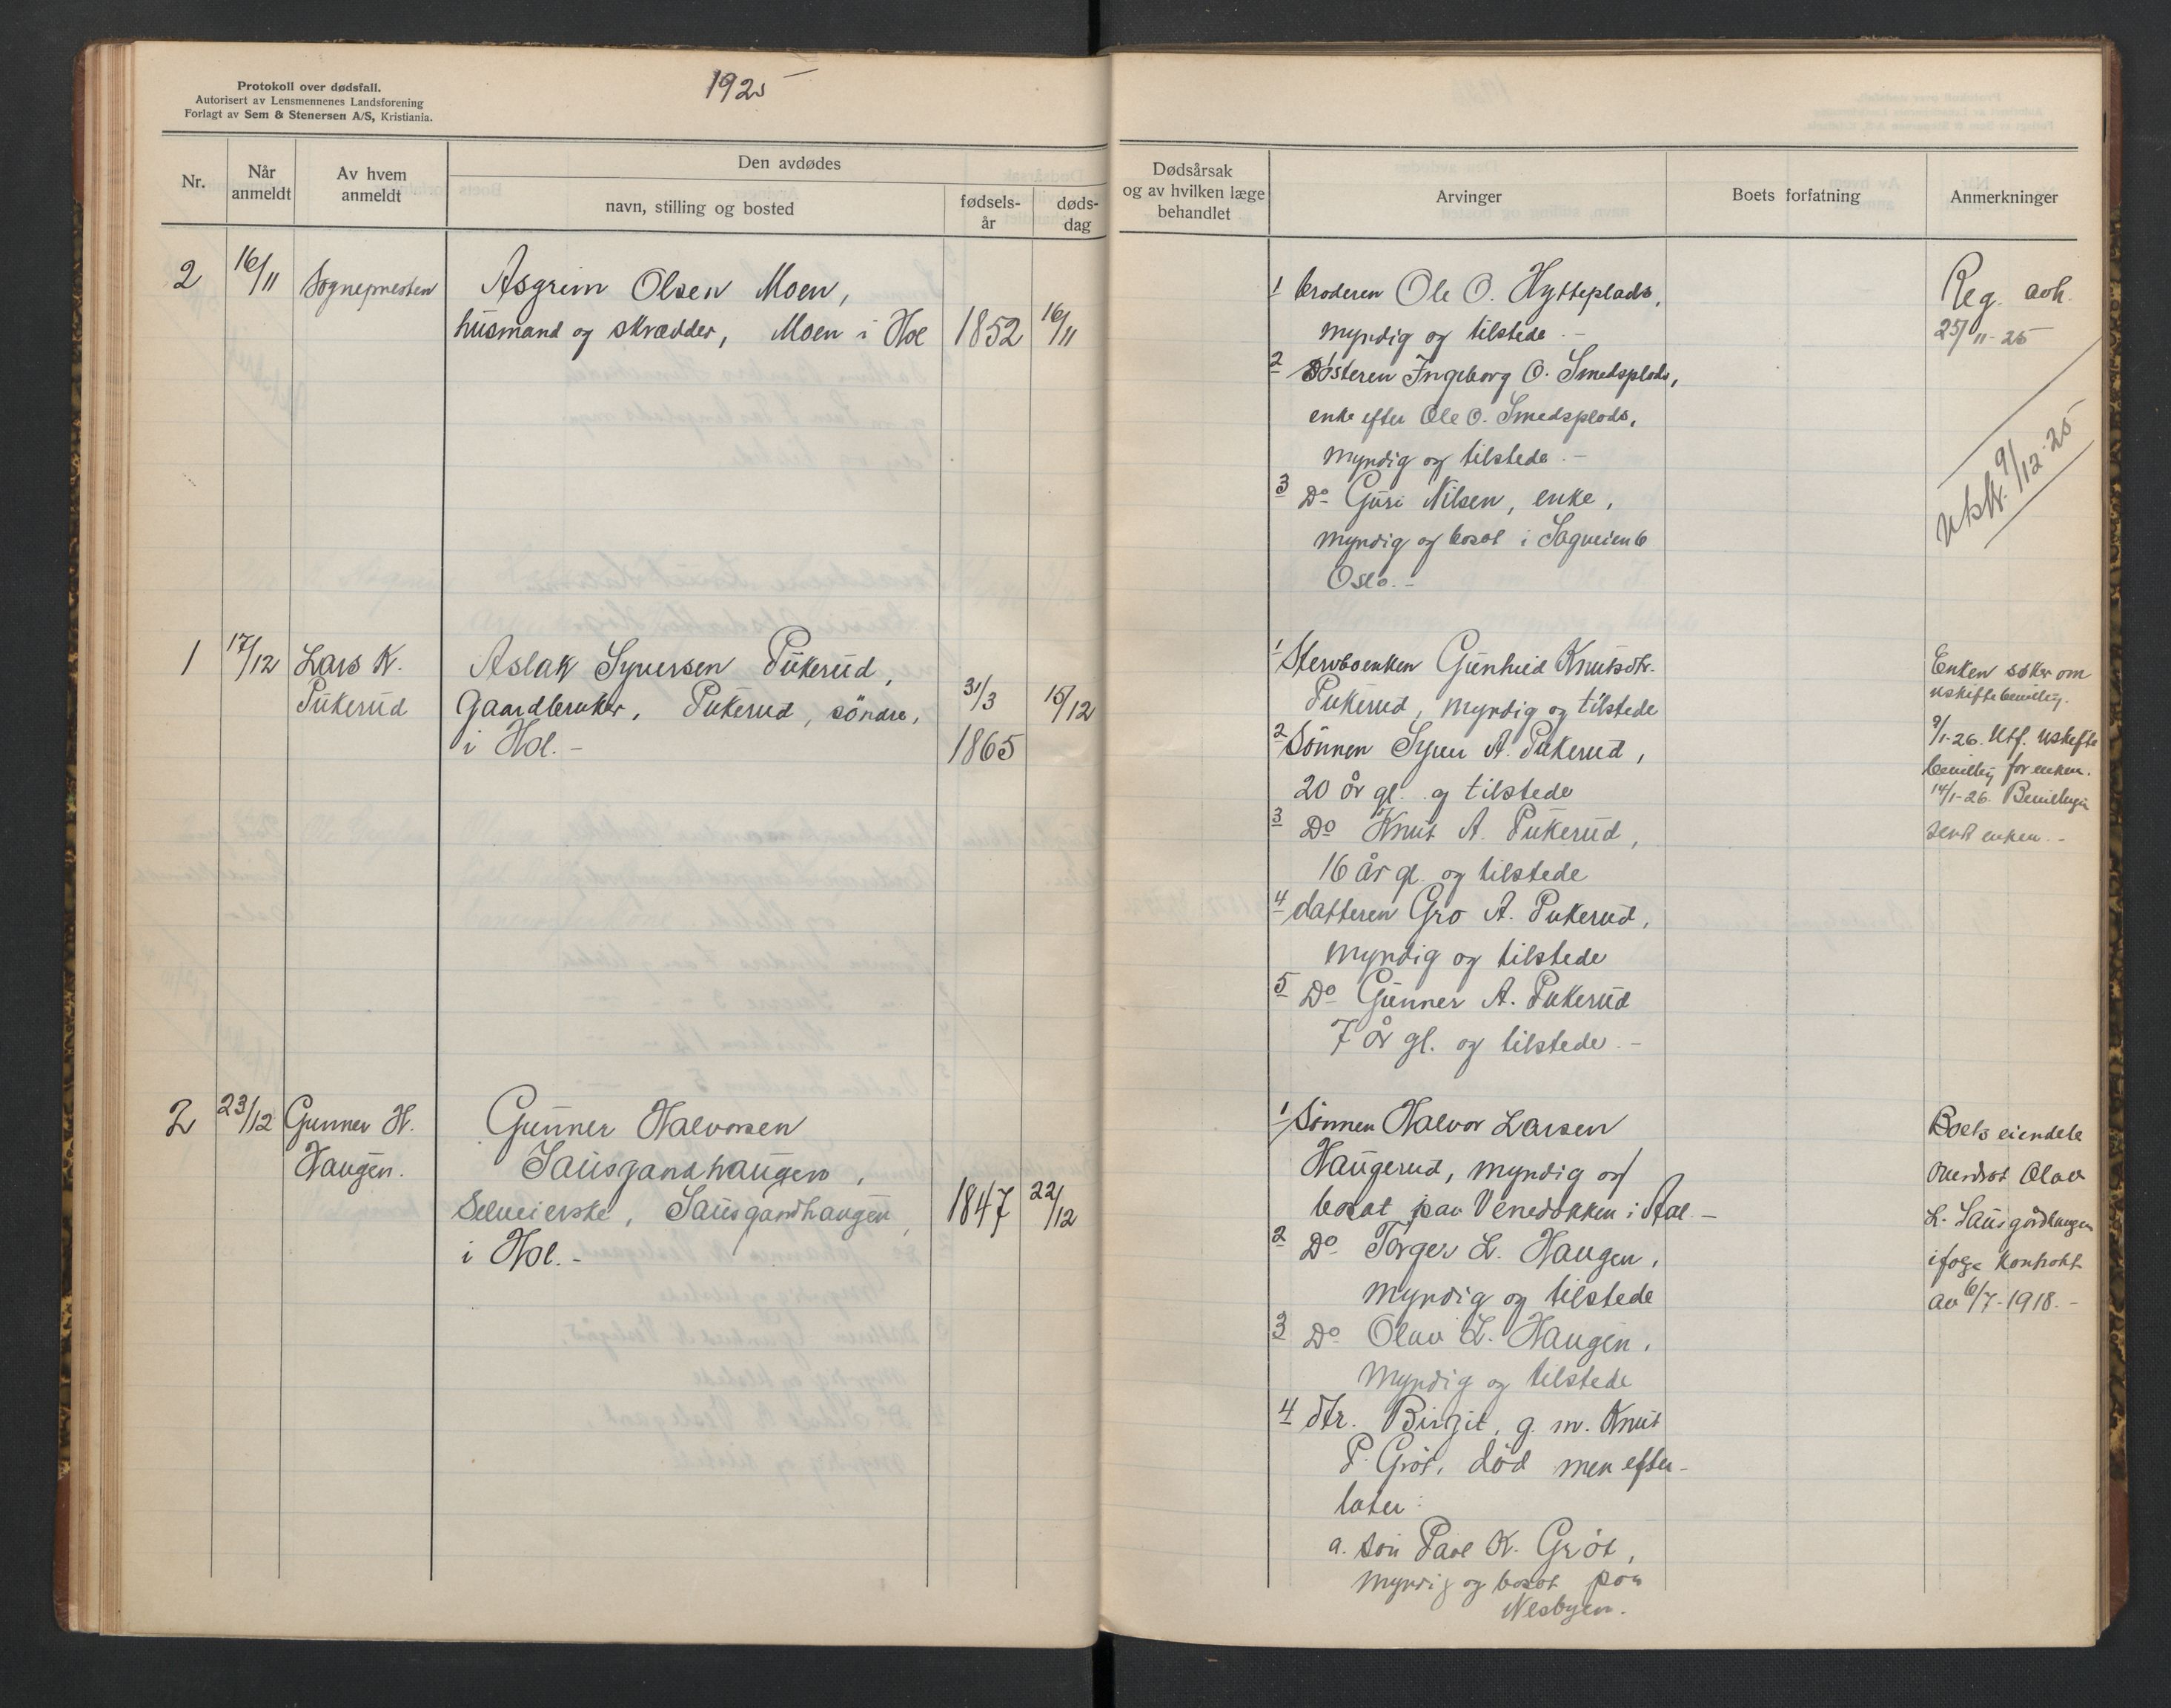 1925
Protokoll over dødsfall.
Autorisert av Lensmennenes Landsforening
Forlagt av Sem & Stenersen A/S, Kristiania.
Nr.
Når anmeldt
Av hvem anmeldt
Den avdødes
navn, stilling og bosted
fødsels-år
døds-dag
Dødsårsak og av hvilken læge behandlet
Arvinger
Boets forfatning
Anmerkninger
2
16/11
Sognepresten
Asgrim Olsen Moen,
husmand og skrædder, Moen i Hol
1852
16/11
1 broderen Ole O. Hytteplads,
myndig og tilstede. -
2 Søsteren Ingeborg O. Smedsplads,
enke efter Ole O. Smedsplads,
myndig og tilstede. -
3 Do Guri Nilsen, enke,
myndig og bosat i Sagveien 6
Oslo. -
Reg. avh.
25/11-25
9/12-25
1
17/12
Lars K.
Pukerud
Aslak Syversen Pukerud,
Gaardbruker, Pukerud, söndre,
i Hol. -
31/3
1865
15/12
1 Stervboenken Gunhild Knutsdtr.
Pukerud, myndig og tilstede
2 Sönnen Syver A. Pukerud,
20 år gl. og tilstede
3 Do Knut A. Pukerud,
16 år gl. og tilstede
4 datteren Gro A. Pukerud,
myndig og tilstede
5 Do Gunner A. Pukerud
7 år gl. og tilstede. -
Enken søker om
uskiftebevillg.
9/1-26. Utf. uskifte
bevillg for enken.
14/1-26. Bevillingen
sendt enken. -
2
23/12
Gunner H.
Haugen.
Gunner Halvorsen
Sausgardhaugen,
Selveierske, Sausgardhaugen,
i Hol. -
1847
22/12
1 Sönnen Halvor Larsen
Haugerud, myndig og
bosat paa Venedokken i Aal. -
2 Do Torger L. Haugen,
myndig og tilstede
3 Do Olav L. Haugen,
myndig og tilstede
4 dtr. Birgit, g. m. Knut
P. Gröt, död men efter-
later:
a. sön Paal K. Gröt,
myndig og bosat paa
Nesbyen.
Boets eiendele
overdrat Olav
L. Sausgårdhaugen
ifølge kontrakt
av 6/7-1918. -